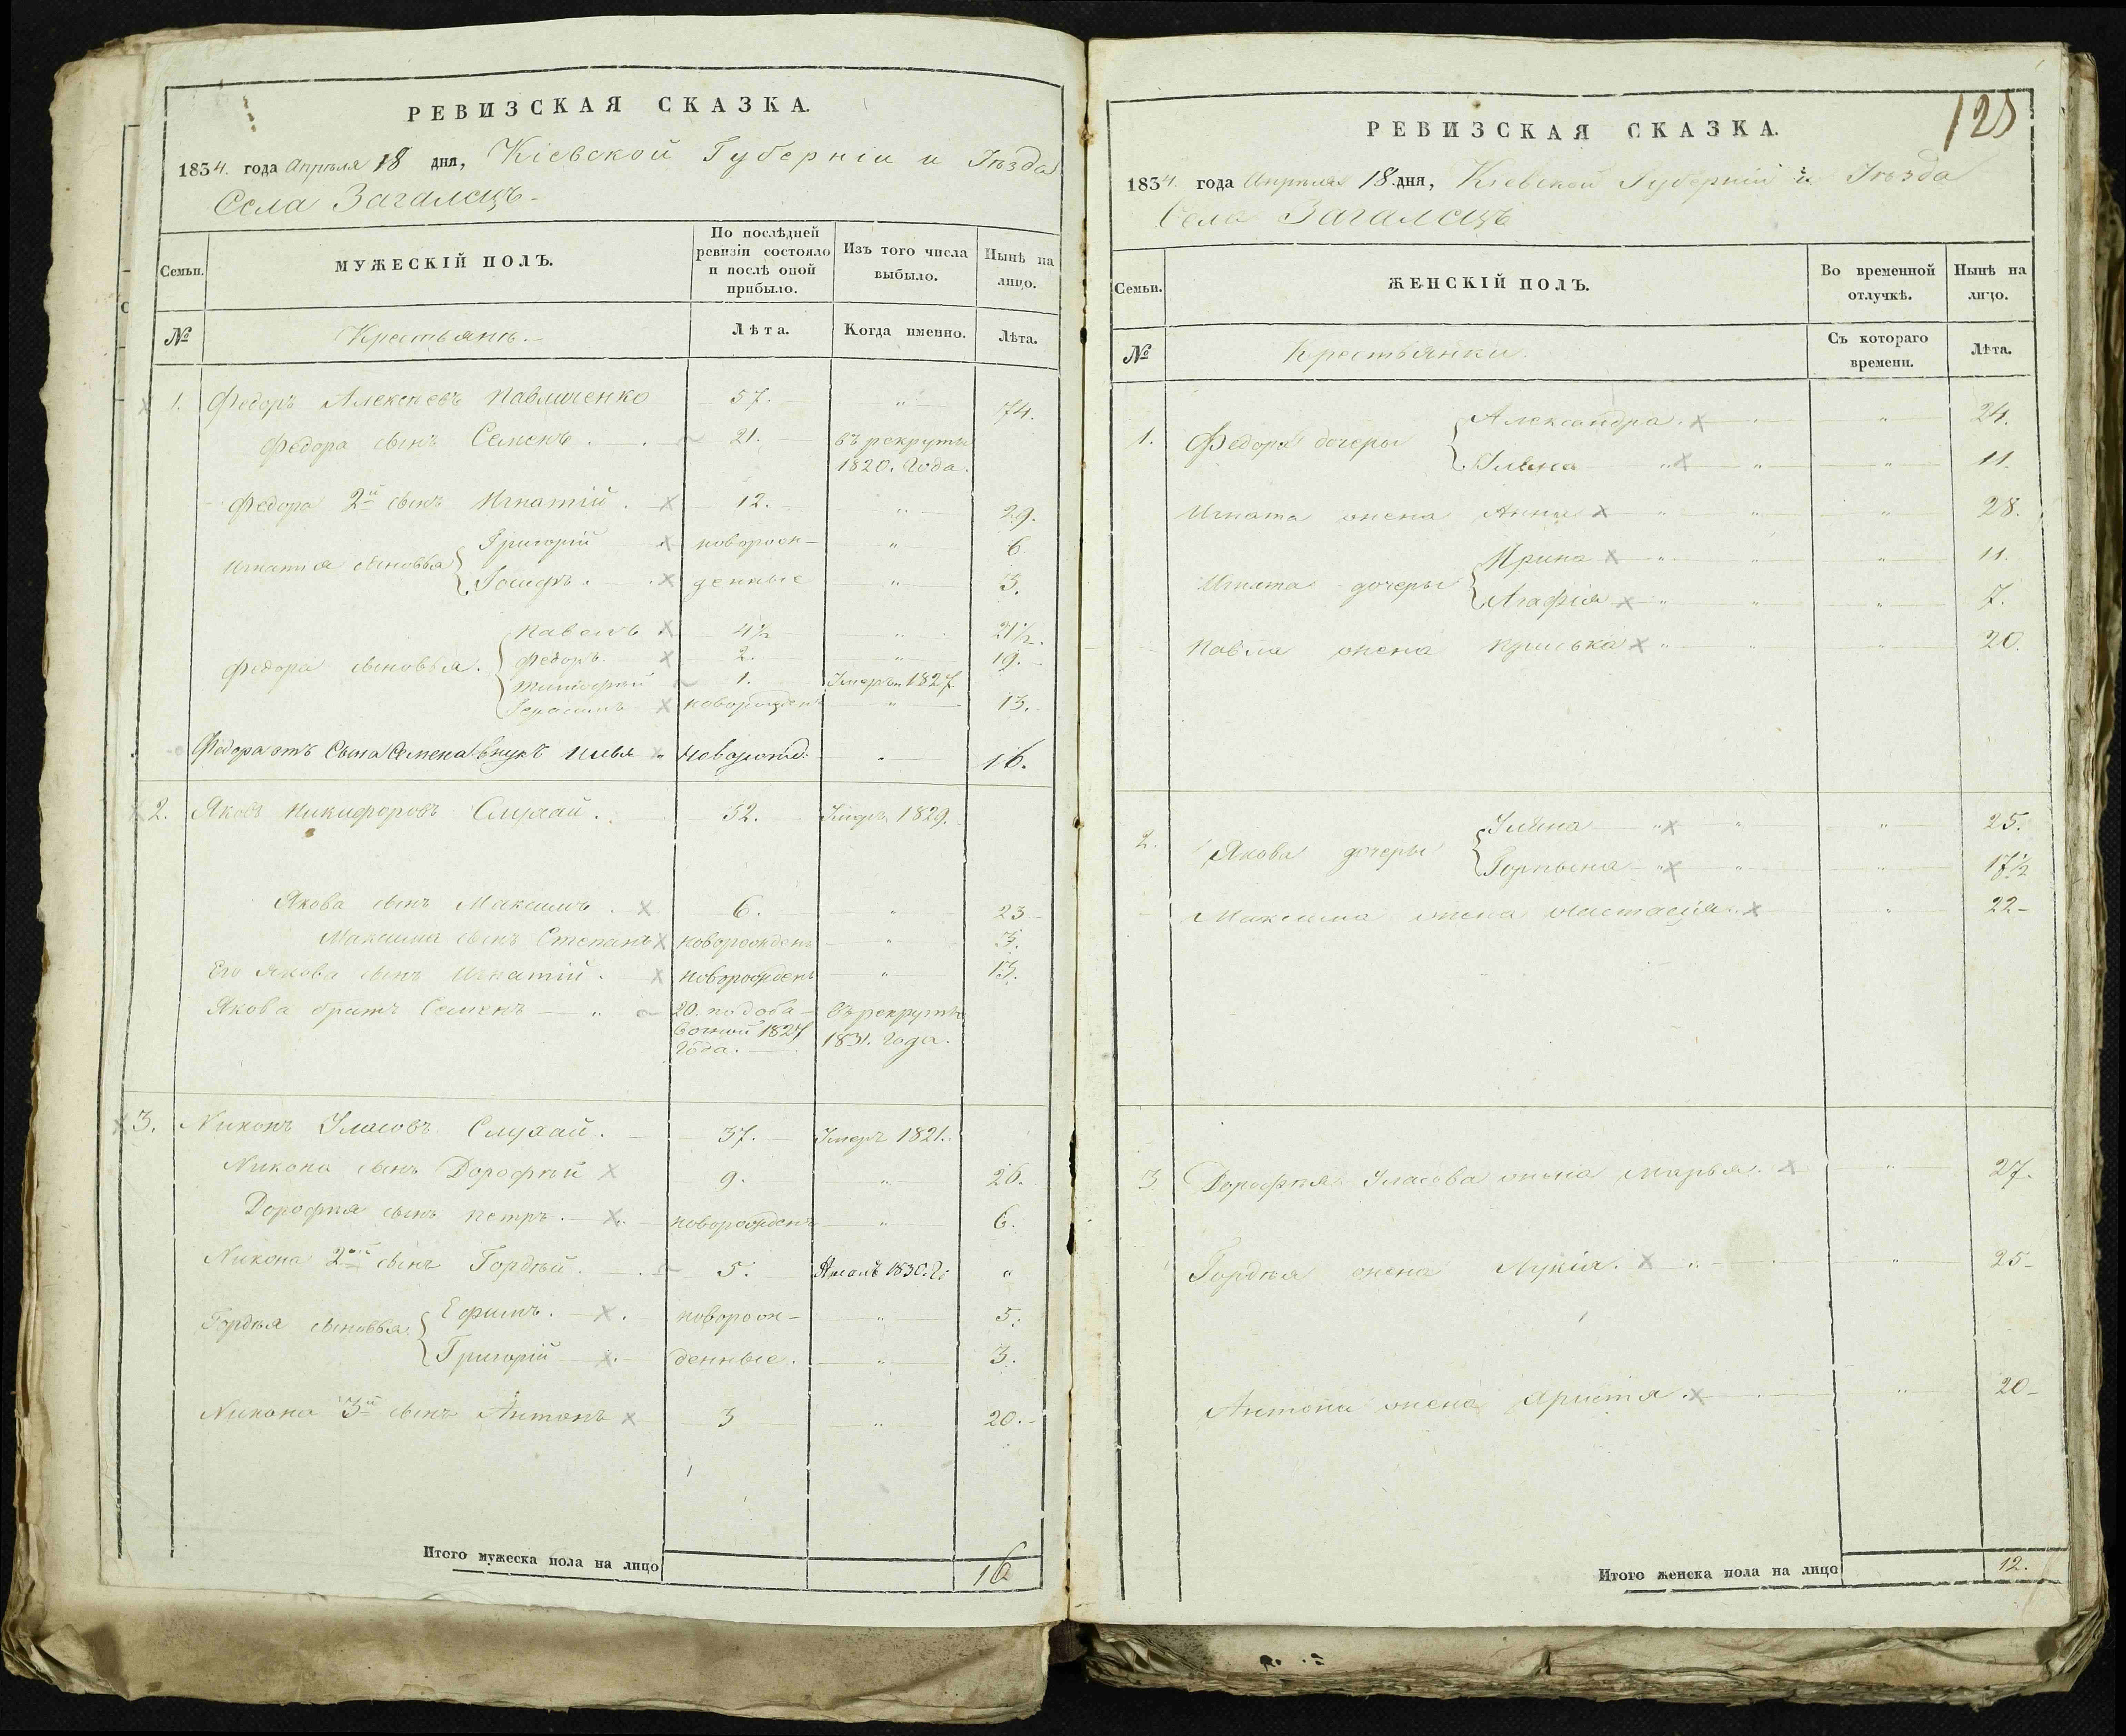 РЕВИЗСКАЯ СКАЗКА.
1834. года Апрѣля 18 дня, Кіевской Губерніи и Уѣзда
Села Загалецъ
Семьи. МУЖЕСКІЙ ПОЛЪ. По послѣдней ревизіи состояло и послѣ оной прибыло. Изъ того числа выбыло. Нынѣ на лицо.
№ Крестьянъ. Лѣта. Когда именно. Лѣта.
1. Федоръ Алексѣевъ Павличенко 57. " 74.
Федора сынъ Семенъ. 21. въ рекруты
1820. Года.
Федора 2й сынъ Игнатій. 12. " 29.
Игнатія сыновья Григорій новорож- " 6
Іосифъ. денные " 3.
Федора сыновья. Павелъ 4½ " 21½.
Федоръ. 2. " 19.
Тимофѣй 1. Умеръ 1827
Герасимъ новорожденъ " 13.
Федора отъ Сына Семена внукъ Илья " Новорожд: " 16.
2. Яковъ Никифоровъ Слухай. 32. Умеръ 1829.
Якова сынъ Максимъ. 6. " 23
Максима сынъ Степанъ новорожденъ " 3.
Его Якова сынъ Игнатій. новорожденъ " 13.
Якова братъ Семенъ " 20. по доба- Въ рекруты
вочной 1827 1831. Года.
Года.
3. Никонъ Уласовъ Слухай. 37. Умеръ 1821.
Никона сынъ Дорофѣй 9. " 26.
Дорофѣя сынъ Петръ. новорожденъ " 6.
Никона 2й сынъ Гордѣй. 5. 1830. "
Гордѣя сыновья Ефимъ. новорож- " 5.
Григорій денные. " 3.
Никона 3й сынъ Антонъ 3 " 20.
Итого мужеска пола на лицо 16
125
РЕВИЗСКАЯ СКАЗКА.
1834. года Апрѣля 18 дня, Кіевской Губерніи и Уѣзда
Села Загалецъ
Семьи. ЖЕНСКІЙ ПОЛЪ. Во временной отлучкѣ. Нынѣ на лицо.
№ Крестьянки. Съ котораго времени. Лѣта.
1. Федора дочеры Александра. " 24.
Уляна " " " 11.
Игната жена Анна " " " 28.
Игната дочеры Ирина " " " 11.
Агафія " " " 7.
Павла жена " " " 20.
2. Якова дочеры Уляна " " " 25.
Горпына " " " 17½
Максима жена Настасія. " 22
3. Дорофѣя Уласова жена Марья. " 27.
Гордѣя жена Лукія. " " 25
Антона жена Христя. " 20
Итого женска пола на лицо 12.